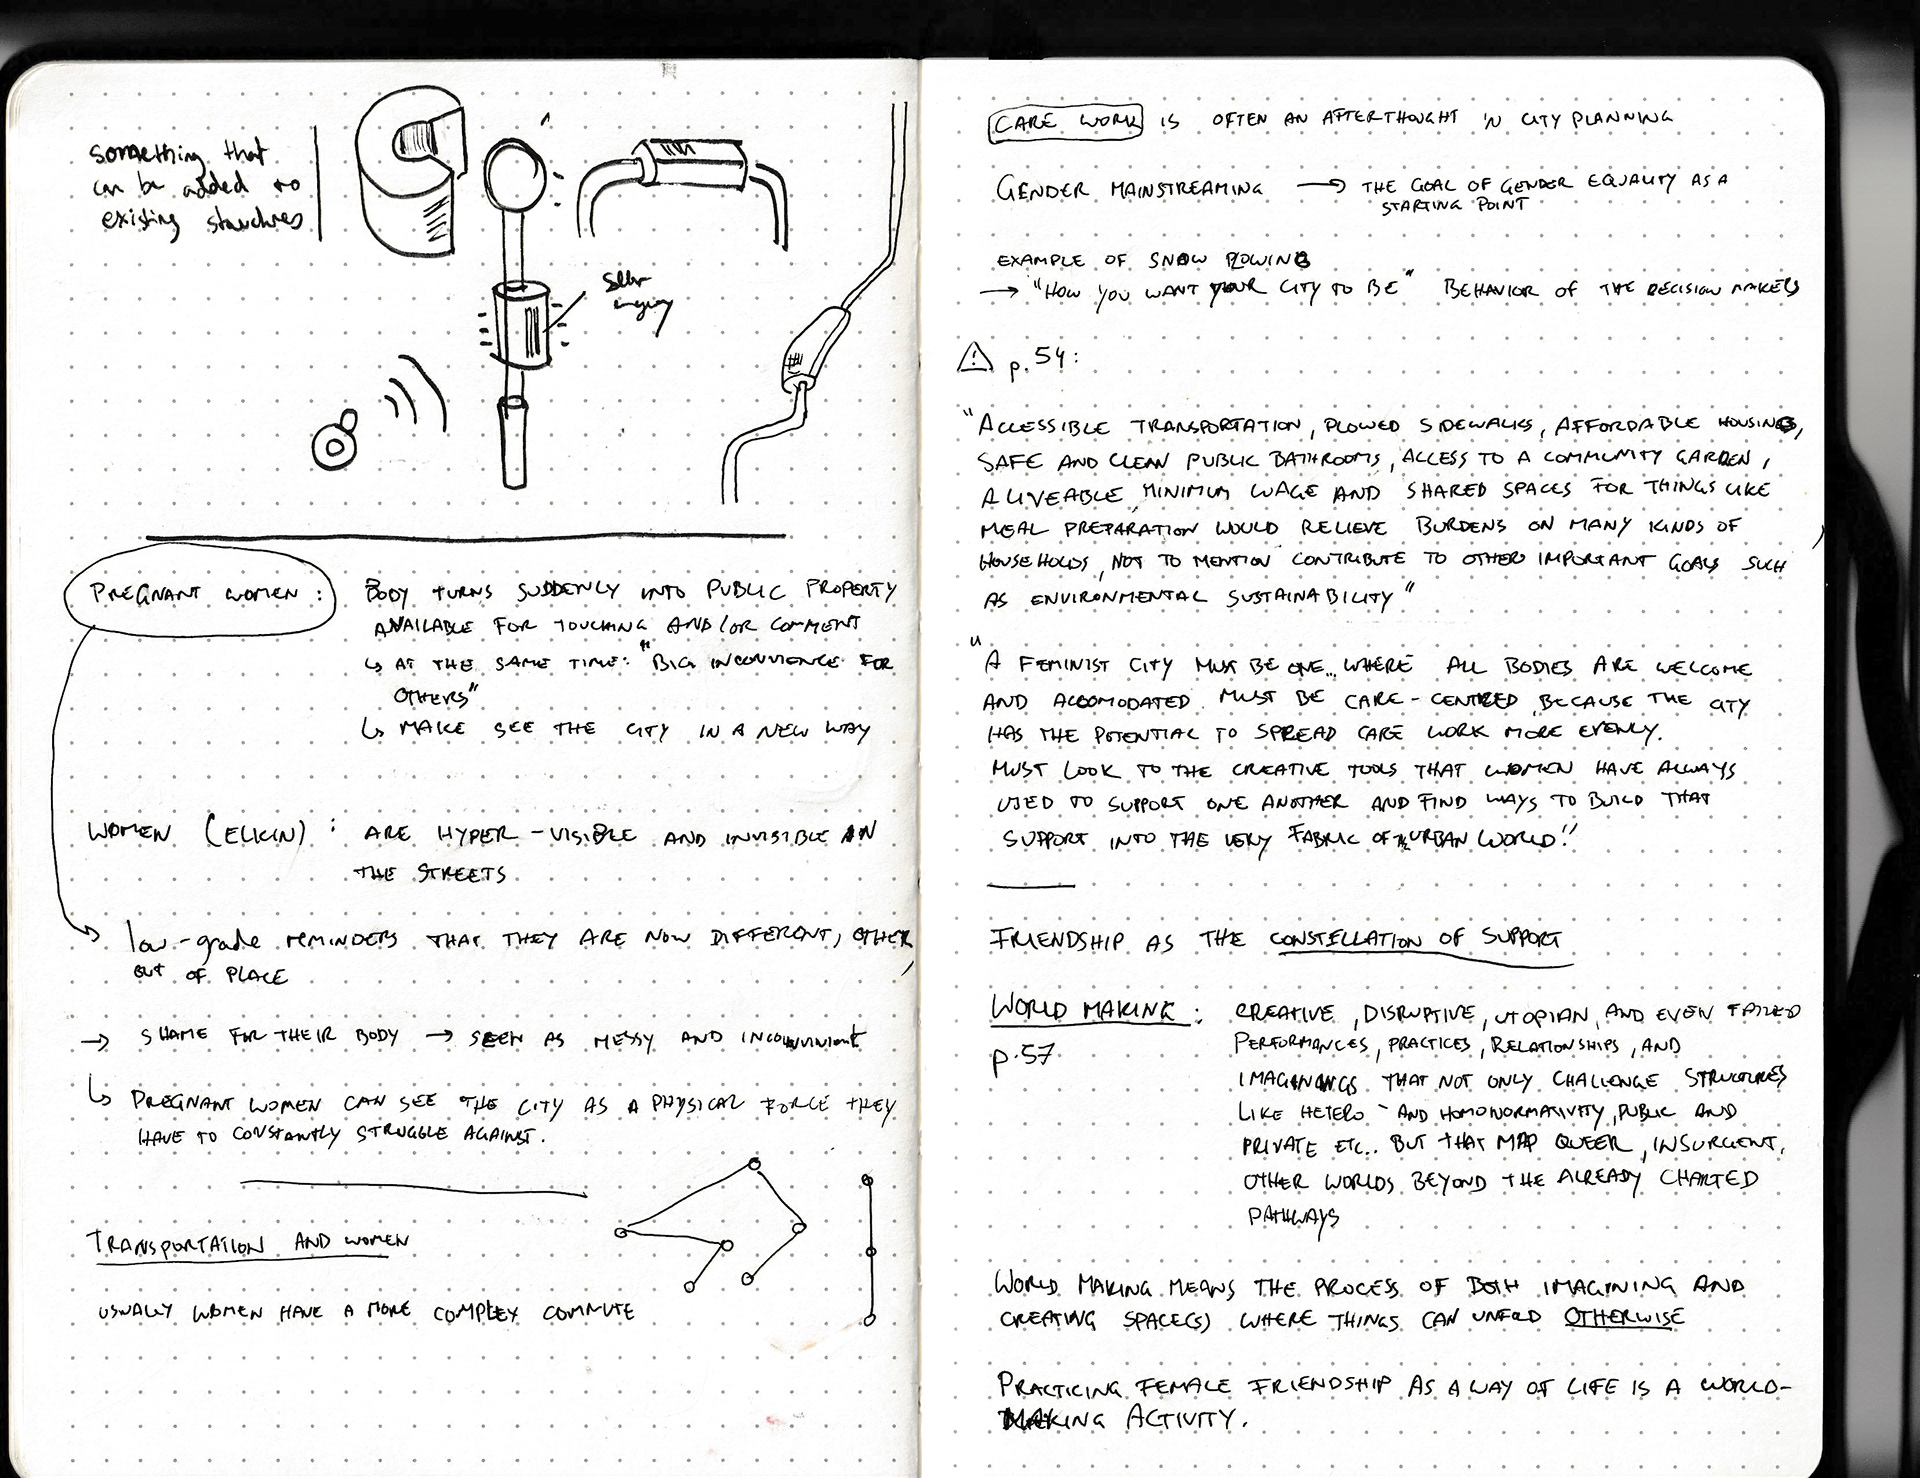 something that
can be added to
existing structures
PREGNANT WOMEN :
BODY TURNS SUDDENLY INTO PUBLIC PROPERTY
AVAILABLE FOR TOUCHING AND/OR COMMENT
↳ AT THE SAME TIME: "BIG INCONVIENCE FOR
OTHERS"
↳ MAKE SEE THE CITY IN A NEW WAY
WOMEN (ELKIN) : ARE HYPER-VISIBLE AND INVISIBLE IN
THE STREETS
low-grade REMINDERS THAT THEY ARE NOW DIFFERENT, OTHER,
OUT OF PLACE
→ SHAME FOR THEIR BODY → SEEN AS MESSY AND INCONVINIENT
↳ PREGNANT WOMEN CAN SEE THE CITY AS A PHYSICAL FORCE THEY
HAVE TO CONSTANTLY STRUGGLE AGAINST.
TRANSPORTATION AND WOMEN
USUALLY WOMEN HAVE A MORE COMPLEX COMMUTE
CARE WORK IS OFTEN AN AFTERTHOUGHT IN CITY PLANNING
GENDER MAINSTREAMING → THE GOAL OF GENDER EQUALITY AS A
STARTING POINT
EXAMPLE OF SNOW PLOWING
→ "HOW YOU WANT YOUR CITY TO BE" BEHAVIOR OF THE DECISION MAKERS
p.54:
"ACCESSIBLE TRANSPORTATION, PLOWED SIDEWALKS, AFFORDABLE HOUSING,
SAFE AND CLEAN PUBLIC BATHROOMS, ACCESS TO A COMMUNITY GARDEN,
A LIVEABLE MINIMUM WAGE AND SHARED SPACES FOR THINGS LIKE
MEAL PREPARATION WOULD RELIEVE BURDENS ON MANY KINDS OF
HOUSEHOLDS, NOT TO MENTION CONTRIBUTE TO OTHER IMPORTANT GOALS SUCH
AS ENVIRONMENTAL SUSTAINABILITY"
"A FEMINIST CITY MUST BE ONE.. WHERE ALL BODIES ARE WELCOME
AND ACCOMODATED. MUST BE CARE-CENTRED, BECAUSE THE CITY
HAS THE POTENTIAL TO SPREAD CARE WORK MORE EVENLY.
MUST LOOK TO THE CREATIVE TOOLS THAT WOMEN HAVE ALWAYS
USED TO SUPPORT ONE ANOTHER AND FIND WAYS TO BUILD THAT
SUPPORT INTO THE VERY FABRIC OF THE URBAN WORLD."
FRIENDSHIP AS THE CONSTELLATION OF SUPPORT
WORLD MAKING : CREATIVE, DISRUPTIVE, UTOPIAN, AND EVEN FAILED
p.57 PERFORMANCES, PRACTICES, RELATIONSHIPS, AND
IMAGININGS THAT NOT ONLY CHALLENGE STRUCTURES
LIKE HETERO- AND HOMONORMATIVITY, PUBLIC AND
PRIVATE ETC.. BUT THAT MAP QUEER, INSURGENT,
OTHER WORLDS BEYOND THE ALREADY CHARTED
PATHWAYS
WORLD MAKING MEANS THE PROCESS OF BOTH IMAGINING AND
CREATING SPACE(S) WHERE THINGS CAN UNFOLD OTHERWISE
PRACTICING FEMALE FRIENDSHIP AS A WAY OF LIFE IS A WORLD-
MAKING ACTIVITY.